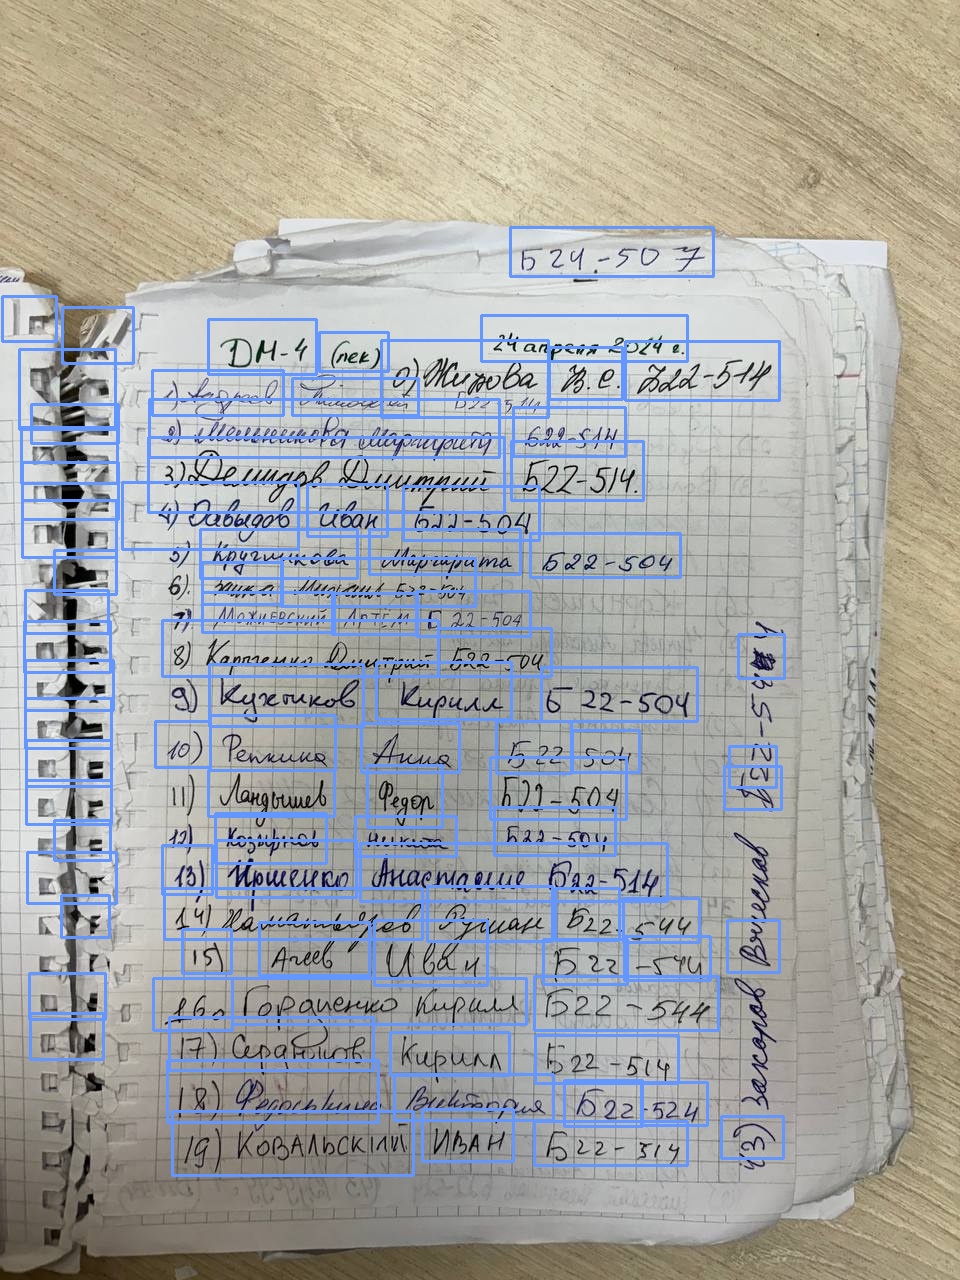 Б24-507
ДМ-4 (лек) 24 апреля 2024 г.
0) Жирова В.С. Б22-514
1) Андреев Тимофей Б22-514
2) Маргарита Б22-514
3) Демидов Дмитрий Б22-514.
4) Давыдов Иван Б22-504
5) Кругликова Маргарита Б22-504
6). Заика Михаил Б22-504
7) Можиевский Артём Б22-504
8) Карпенко Дмитрий Б22-504
9) Кужтиков Кирилл Б22-504
10) Репкина Анна Б22-504
11) Ландышев Федор Б22-504
12) Никита Б22-504
13) Иршенко Анастасия Б22-514
14) Руслан Б22-544
15) Агеев Иван Б22-544
16. Гордиенко Кирилл Б22-544
17) Кирилл Б22-514
18) Виктория Б22-524
19) Ковальский Иван Б22-514
43) Захаров Вячеслав